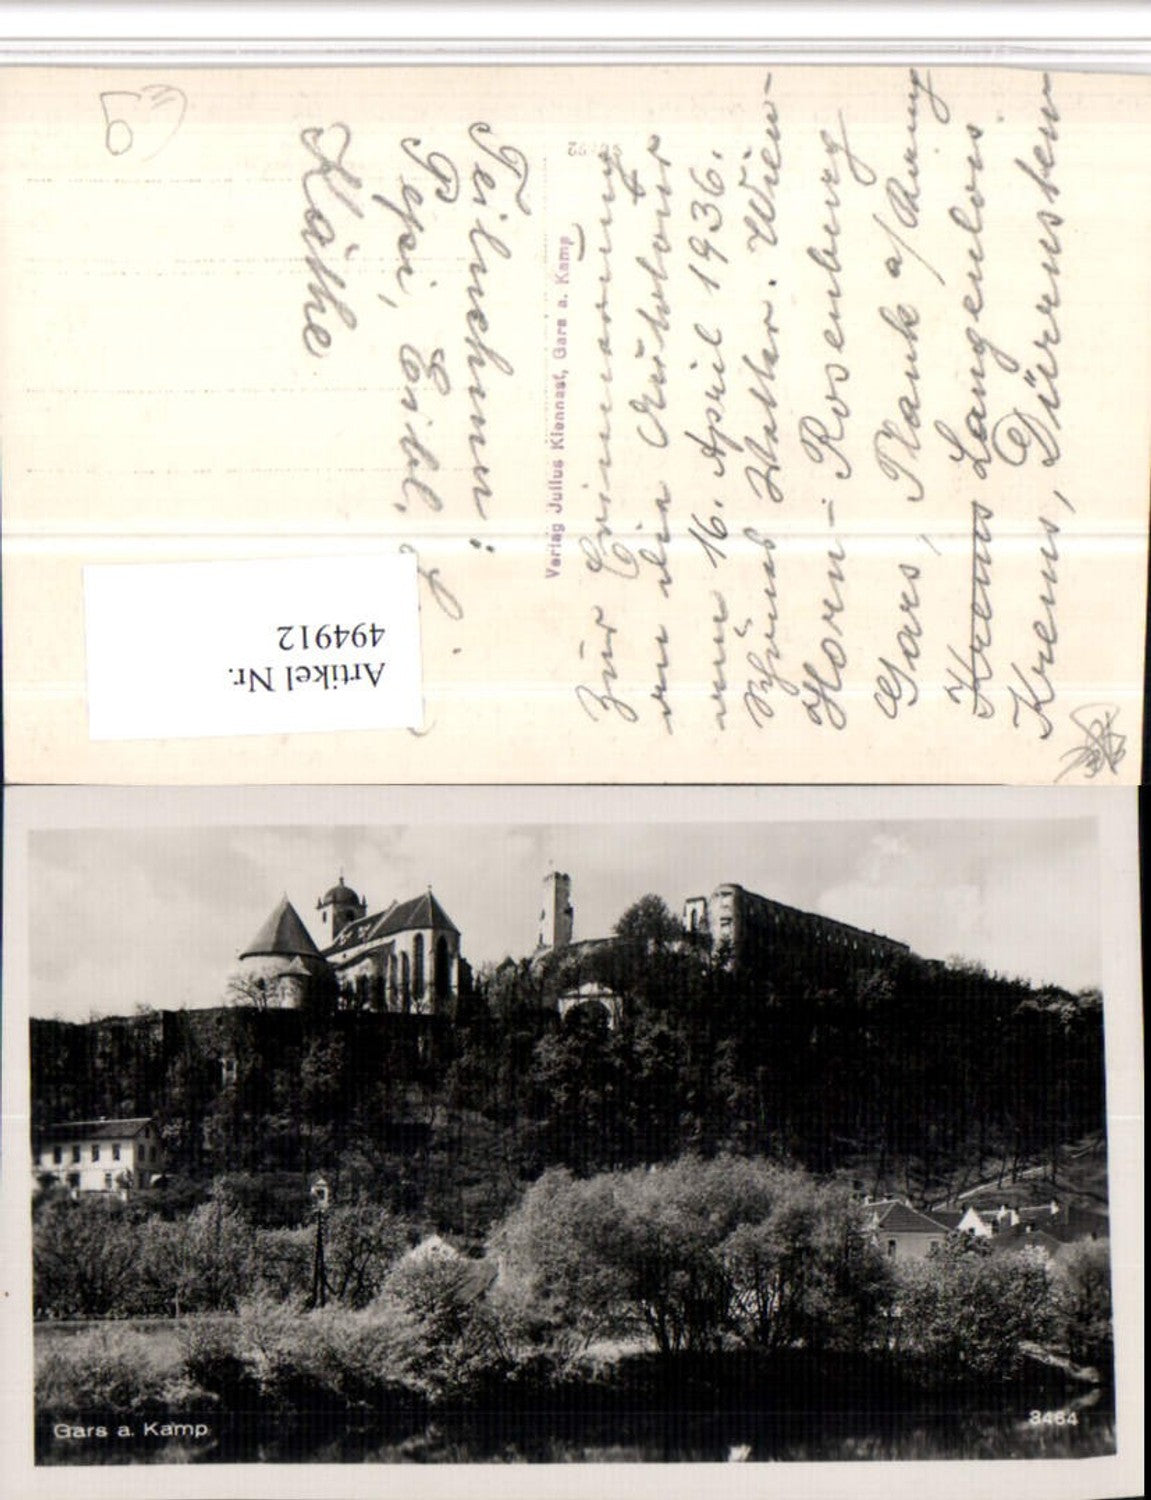 Zur Erinnerung
an die Autotour
am 16. April 1936.
Schönes Wetter. Wien-
Horn - Rosenburg
Gars, Plank a/Kamp
Krems Langenlois
Krems, Dürrnstein
Verlag Julius Kiennast, Gars a. Kamp
Teilnehmer:
Pepi,
Käthe
5
Artikel Nr.
494912
Gars a. Kamp
3464